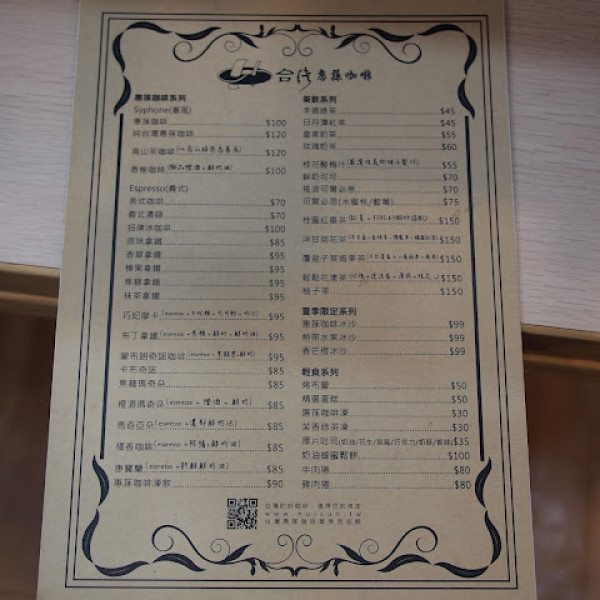 台灣惠蓀咖啡
惠蓀咖啡系列
Syphone(塞風)
惠蓀咖啡 $100
純台灣惠蓀咖啡 $120
高山茶咖啡 $120
香榭咖啡 $100
Espresso(義式)
美式咖啡 $70
義式濃縮 $70
招牌冰咖啡 $100
原味拿鐵 $85
香草拿鐵 $95
榛果拿鐵 $95
焦糖拿鐵 $95
抹茶拿鐵 $95
巧妃摩卡 $95
布丁拿鐵(espresso+焦糖+鮮奶+鮮奶油) $95
蒙布朗奇諾咖啡 $95
卡布奇諾 $85
焦糖瑪奇朵 $85
橙酒瑪奇朵(espresso+橙酒+鮮奶) $85
瑪奇亞朵 $85
橘香咖啡 $85
康寶蘭 $85
惠蓀咖啡凍飲 $90
茶飲系列
手摘綠茶 $45
日月潭紅茶 $45
皇家奶茶 $55
玫瑰奶茶 $60
桂花酸梅汁 $55
鮮奶可可 $70
搖滾可爾必思 $70
可爾必思(水蜜桃/藍莓) $75
桂圓紅棗茶 $150
洋甘菊花茶 $150
覆盆子萊姆果茶 $150
輕鬆花漾茶 $150
柚子茶 $150
夏季限定系列
惠蓀咖啡冰沙 $99
熱帶水果冰沙 $99
香芒橙冰沙 $99
輕食系列
烤布蕾 $50
精選蛋糕 $50
惠蓀咖啡凍 $30
茉香綠茶凍 $30
厚片吐司 $35
奶油蜂蜜鬆餅 $100
牛肉捲 $80
雞肉捲 $80